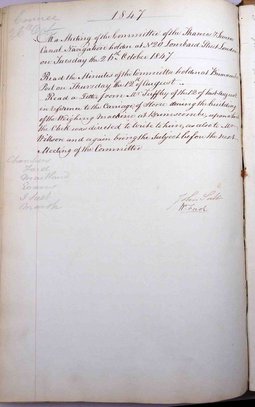 1847
At a Meeting of the Committee of the Thames & Severn
Canal Navigation holden at No 20 Lombard Street London
on Tuesday the 26th October 1847
Read the Minutes of the Committee holden at Brimscombe
Port on Thursday the 12th August
Read a Letter from Mr. of the 12th of last August
in reference to the Carriage of Stone during the building
of the Weighing Machine at Brimscombe, upon which
the Clerk was directed to write to him, as also to Mr
Wilson and again bring the Subject before the next
Meeting of the Committee
Chambers
Ford